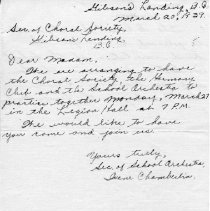 Gibson's Landing, B.C.
March 20, 1939.
Sec of Choral Society,
Gibson's Landing
B.C.
Dear Madam:
We are arranging to have
the Choral Society, the Harmony
Club and the School Orchestra to
practice together Monday, March 27
in the Legion Hall at 7 P.M.
We would like to have
you come and join us.
Yours truly,
Sec of School Orchestra,
Irene Chamberlin